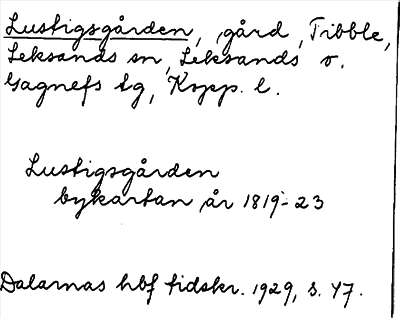 Lustigsgården, gård, Tibble,
Leksands sn, Leksands o.
Gagnefs tg, Kopp. l.
Lustigsgården
bykartan år 1819-23
Dalarnas hbf tidskr. 1929, s. 47.